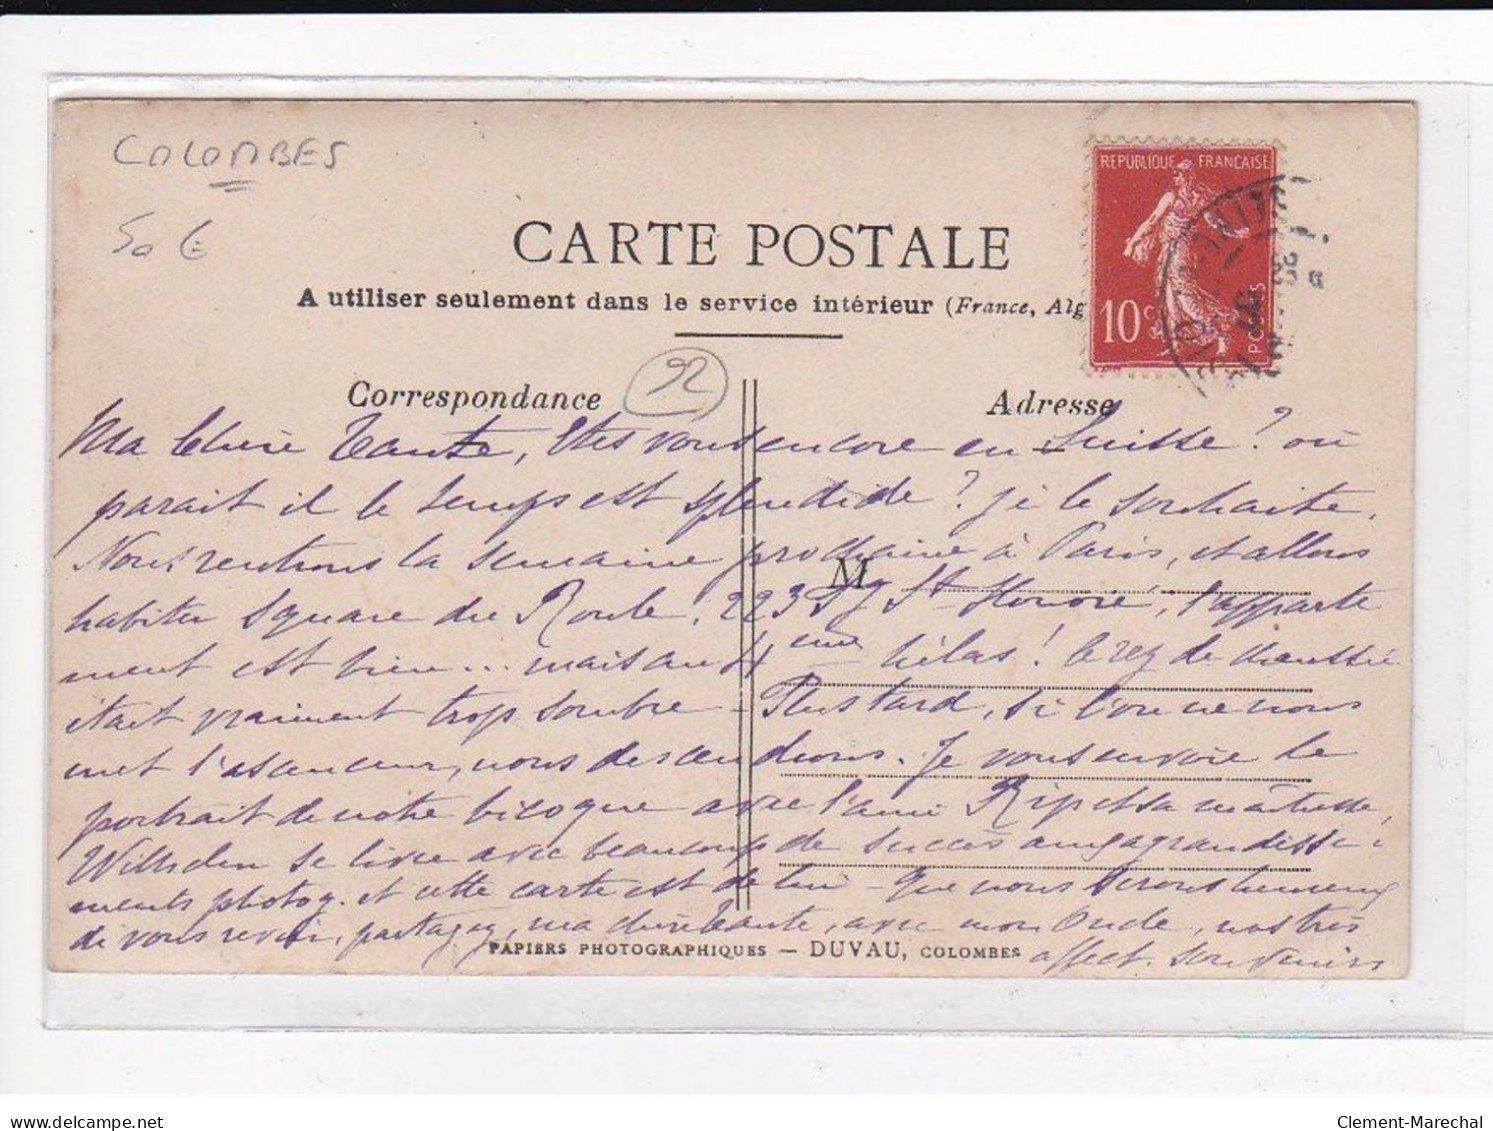 COLOMBES
50 €
REPUBLIQUE FRANÇAISE
10 c
POSTES
CARTE POSTALE
A utiliser seulement dans le service intérieur (France, Alg
Correspondance
92
Adresse
M
Ma Chère Tante, Etes vous encore en Suisse ? où
parait il le temps est splendide ? je le souhaite.
Nous rentrons la semaine prochaine à Paris, et allons
habiter Square du Roule, 223 fg St Honoré, l'apparte
ment est bien... mais au 4 eme hélas ! le rez de chaussée
était vraiment trop sombre - Plus tard, si l'on ne nous
met l'ascenceur, nous descendrons. Je vous envoie le
portrait de notre bicoque avec l'ami Rip et sa maîtresse,
se livre avec beaucoup de succès aux agrandisse
ments photog. et cette carte est de lui - que nous serons heureux
de vous revoir, partagez, ma chère tante, avec mon Oncle, nos très
affect. souvenirs
PAPIERS PHOTOGRAPHIQUES — DUVAU, COLOMBES
delcampe.net
Clement-Marechal